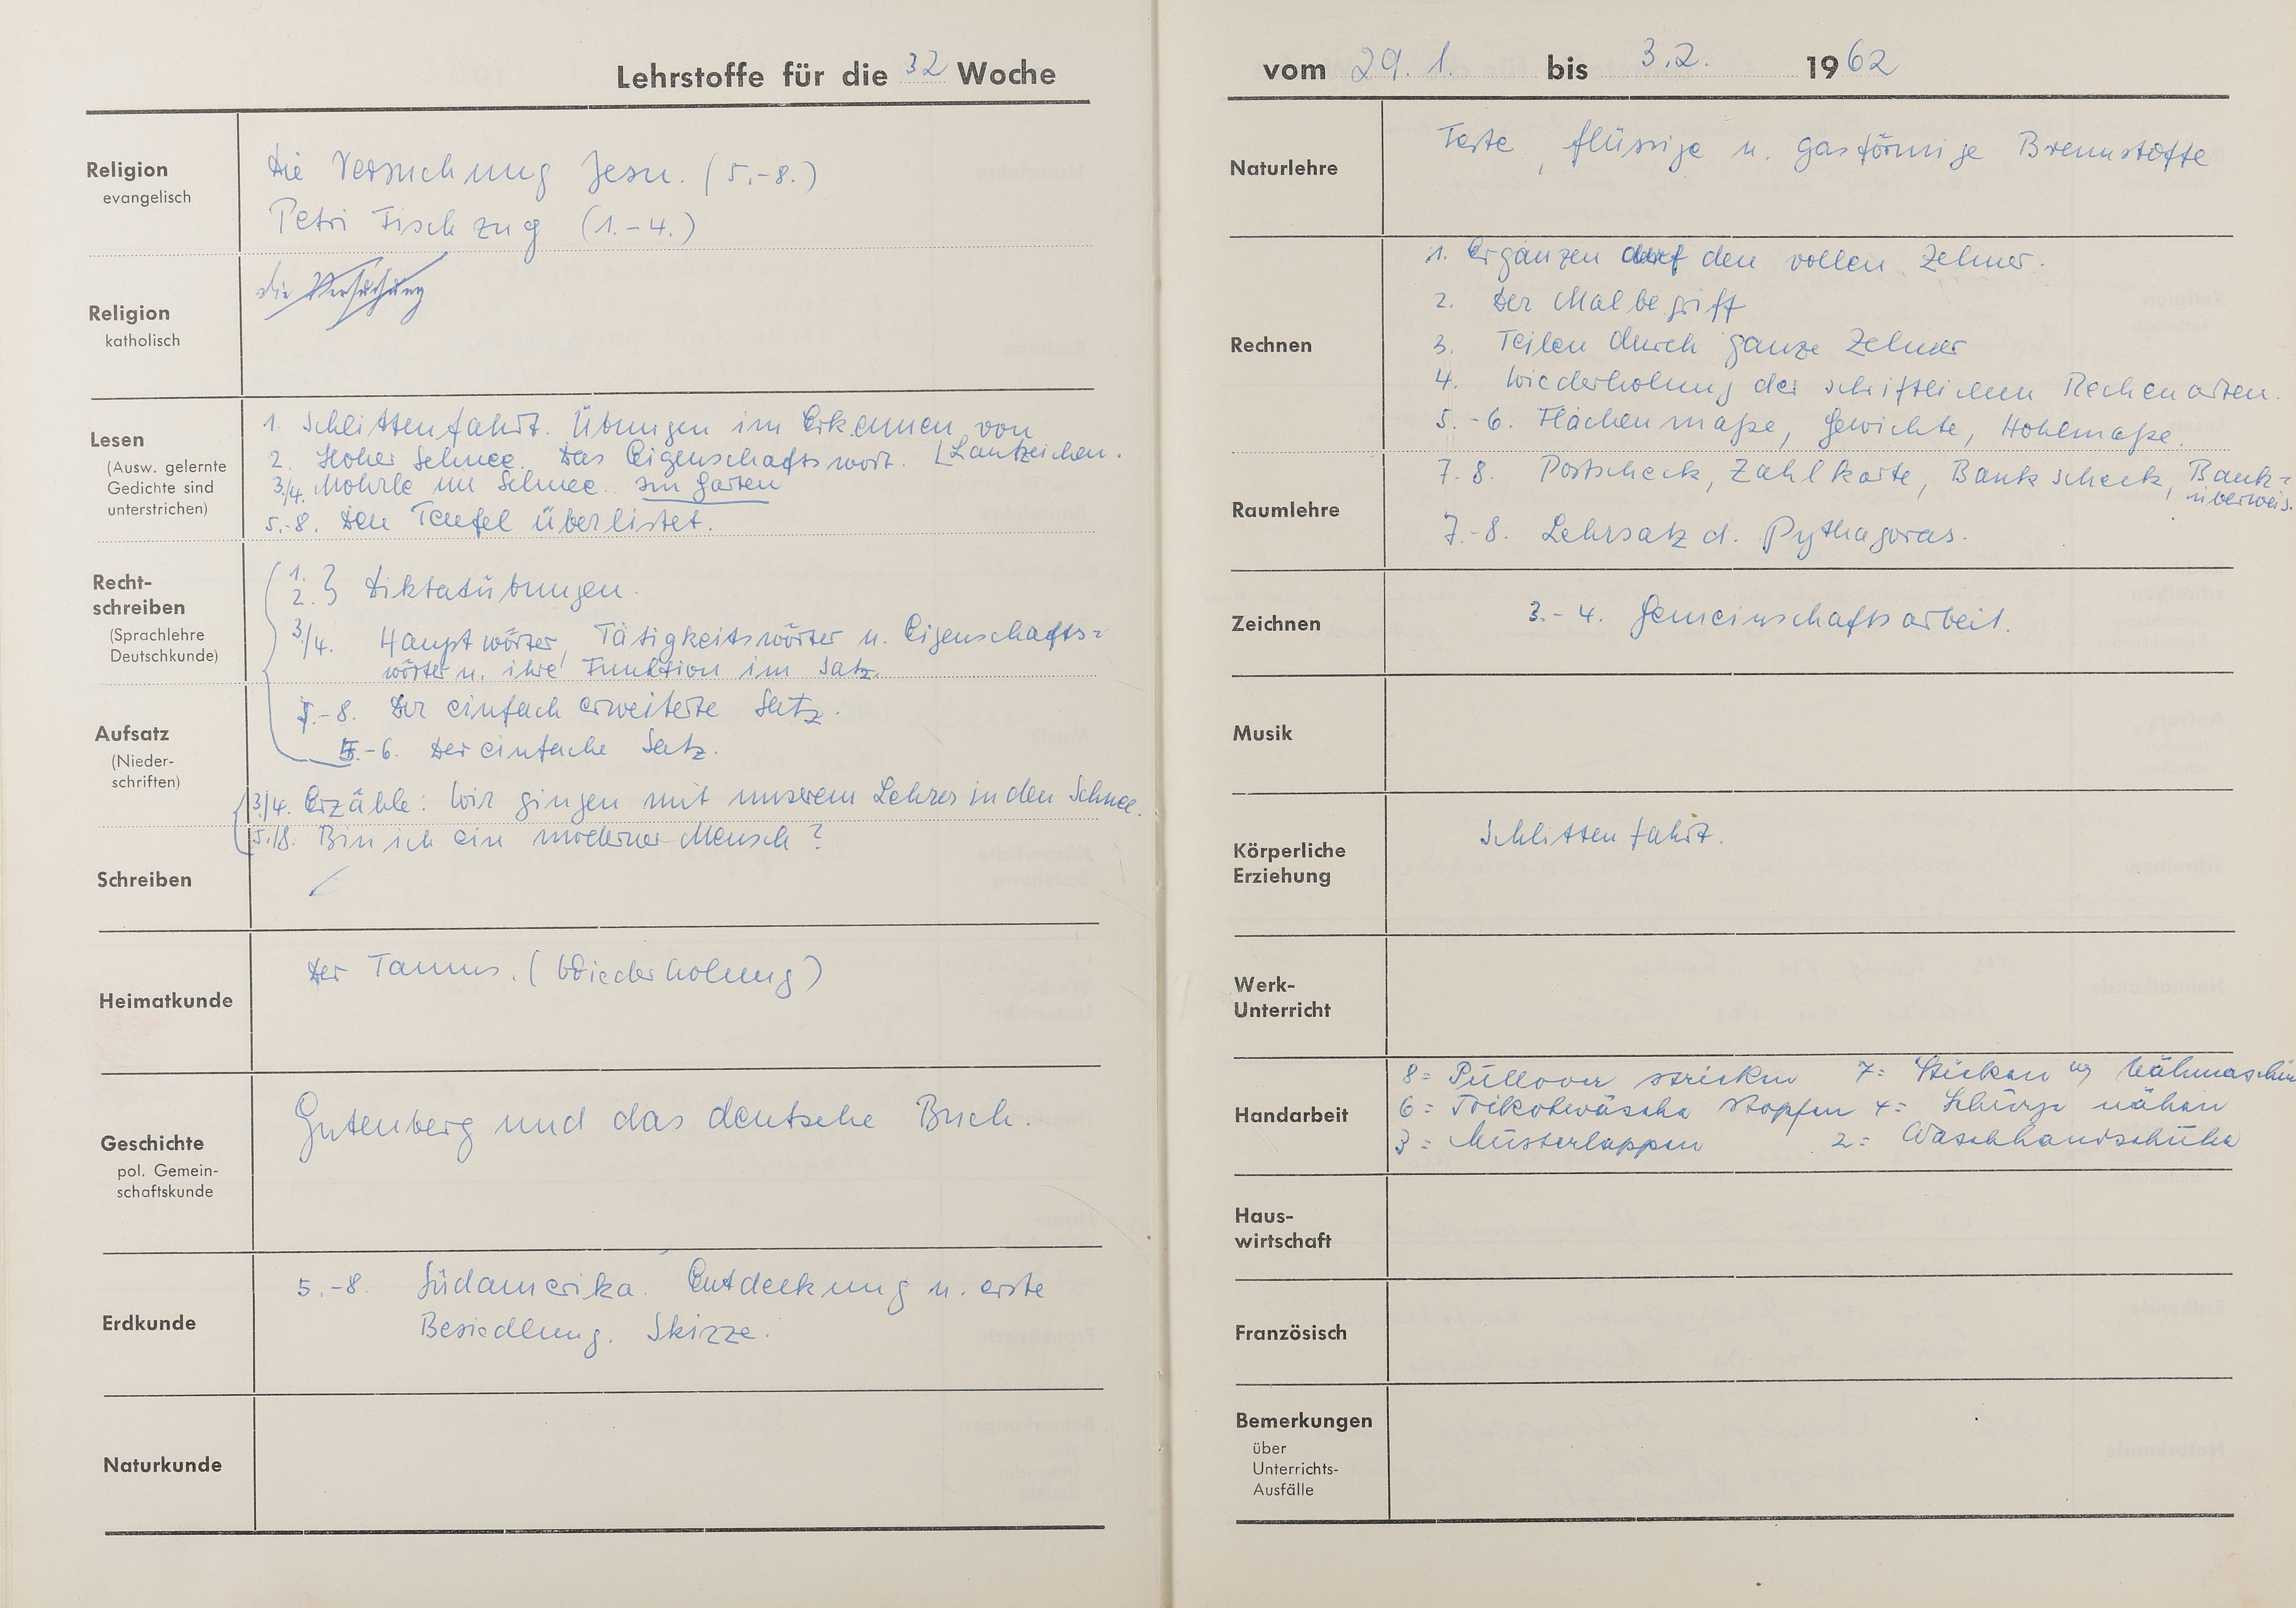 Lehrstoffe für die 32 Woche
Religion
evangelisch
Die Versuchung Jesu. (5.-8.)
Petri Fischzug (1.-4.)
Religion
katholisch
die Versuchung
Lesen
(Ausw. gelernte
Gedichte sind
unterstrichen)
1. Schlittenfahrt. Übungen im Erkennen von
2. Hoher Schnee. Das Eigenschaftswort. [Lautzeichen.
3/4. Mohrle im Schnee. Im Garten
5.-8. Den Teufel überlistet.
Recht-
schreiben
(Sprachlehre
Deutschkunde)
1.
2. } Diktatübungen.
3/4. Hauptwörter, Tätigkeitswörter u. Eigenschafts=
wörter u. ihre Funktion im Satz.
Aufsatz
(Nieder-
schriften)
7.-8. Der einfach erweiterte Satz.
5.-6. Der einfache Satz.
3/4. Erzähle: Wir gingen mit unserem Lehrer in den Schnee.
5./8. Bin ich ein moderner Mensch?
Schreiben
Heimatkunde
Der Taunus. (Wiederholung)
Geschichte
pol. Gemein-
schaftskunde
Gutenberg und das deutsche Buch.
Erdkunde
5.-8. Südamerika. Entdeckung u. erste
Besiedlung. Skizze.
Naturkunde
vom 29. 1. bis 3.2. 1962
Naturlehre
Feste, flüssige u. gasförmige Brennstoffe
Rechnen
1. Ergänzen auf den vollen Zehner.
2. Der Malbegriff
3. Teilen durch ganze Zehner
4. Wiederholung der schriftlichen Rechenarten.
5.-6. Flächenmaße, Gewichte, Hohlmaße.
Raumlehre
7.8. Postscheck, Zahlkarte, Bankscheck, Bank=
überweis.
7.-8. Lehrsatz d. Pythagoras.
Zeichnen
3.-4. Gemeinschaftsarbeit.
Musik
Körperliche
Erziehung
Schlittenfahrt.
Werk-
Unterricht
Handarbeit
8= Pullover stricken 7= Sticken Nähmaschine
6= Trikotwäsche stopfen 4= Schürze nähen
3= Musterlappen 2= Waschhandschuhe
Haus-
wirtschaft
Französisch
Bemerkungen
über
Unterrichts-
Ausfälle